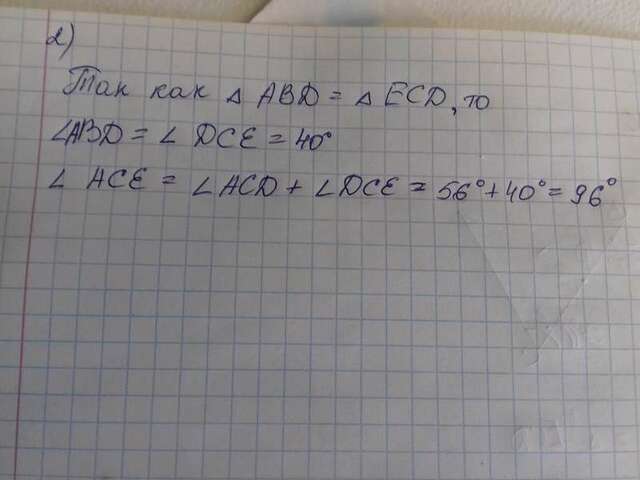 2)
Так как △ ABD = △ ECD, то
∠ABD = ∠ DCE = 40°
∠ ACE = ∠ ACD + ∠DCE = 56° + 40° = 96°